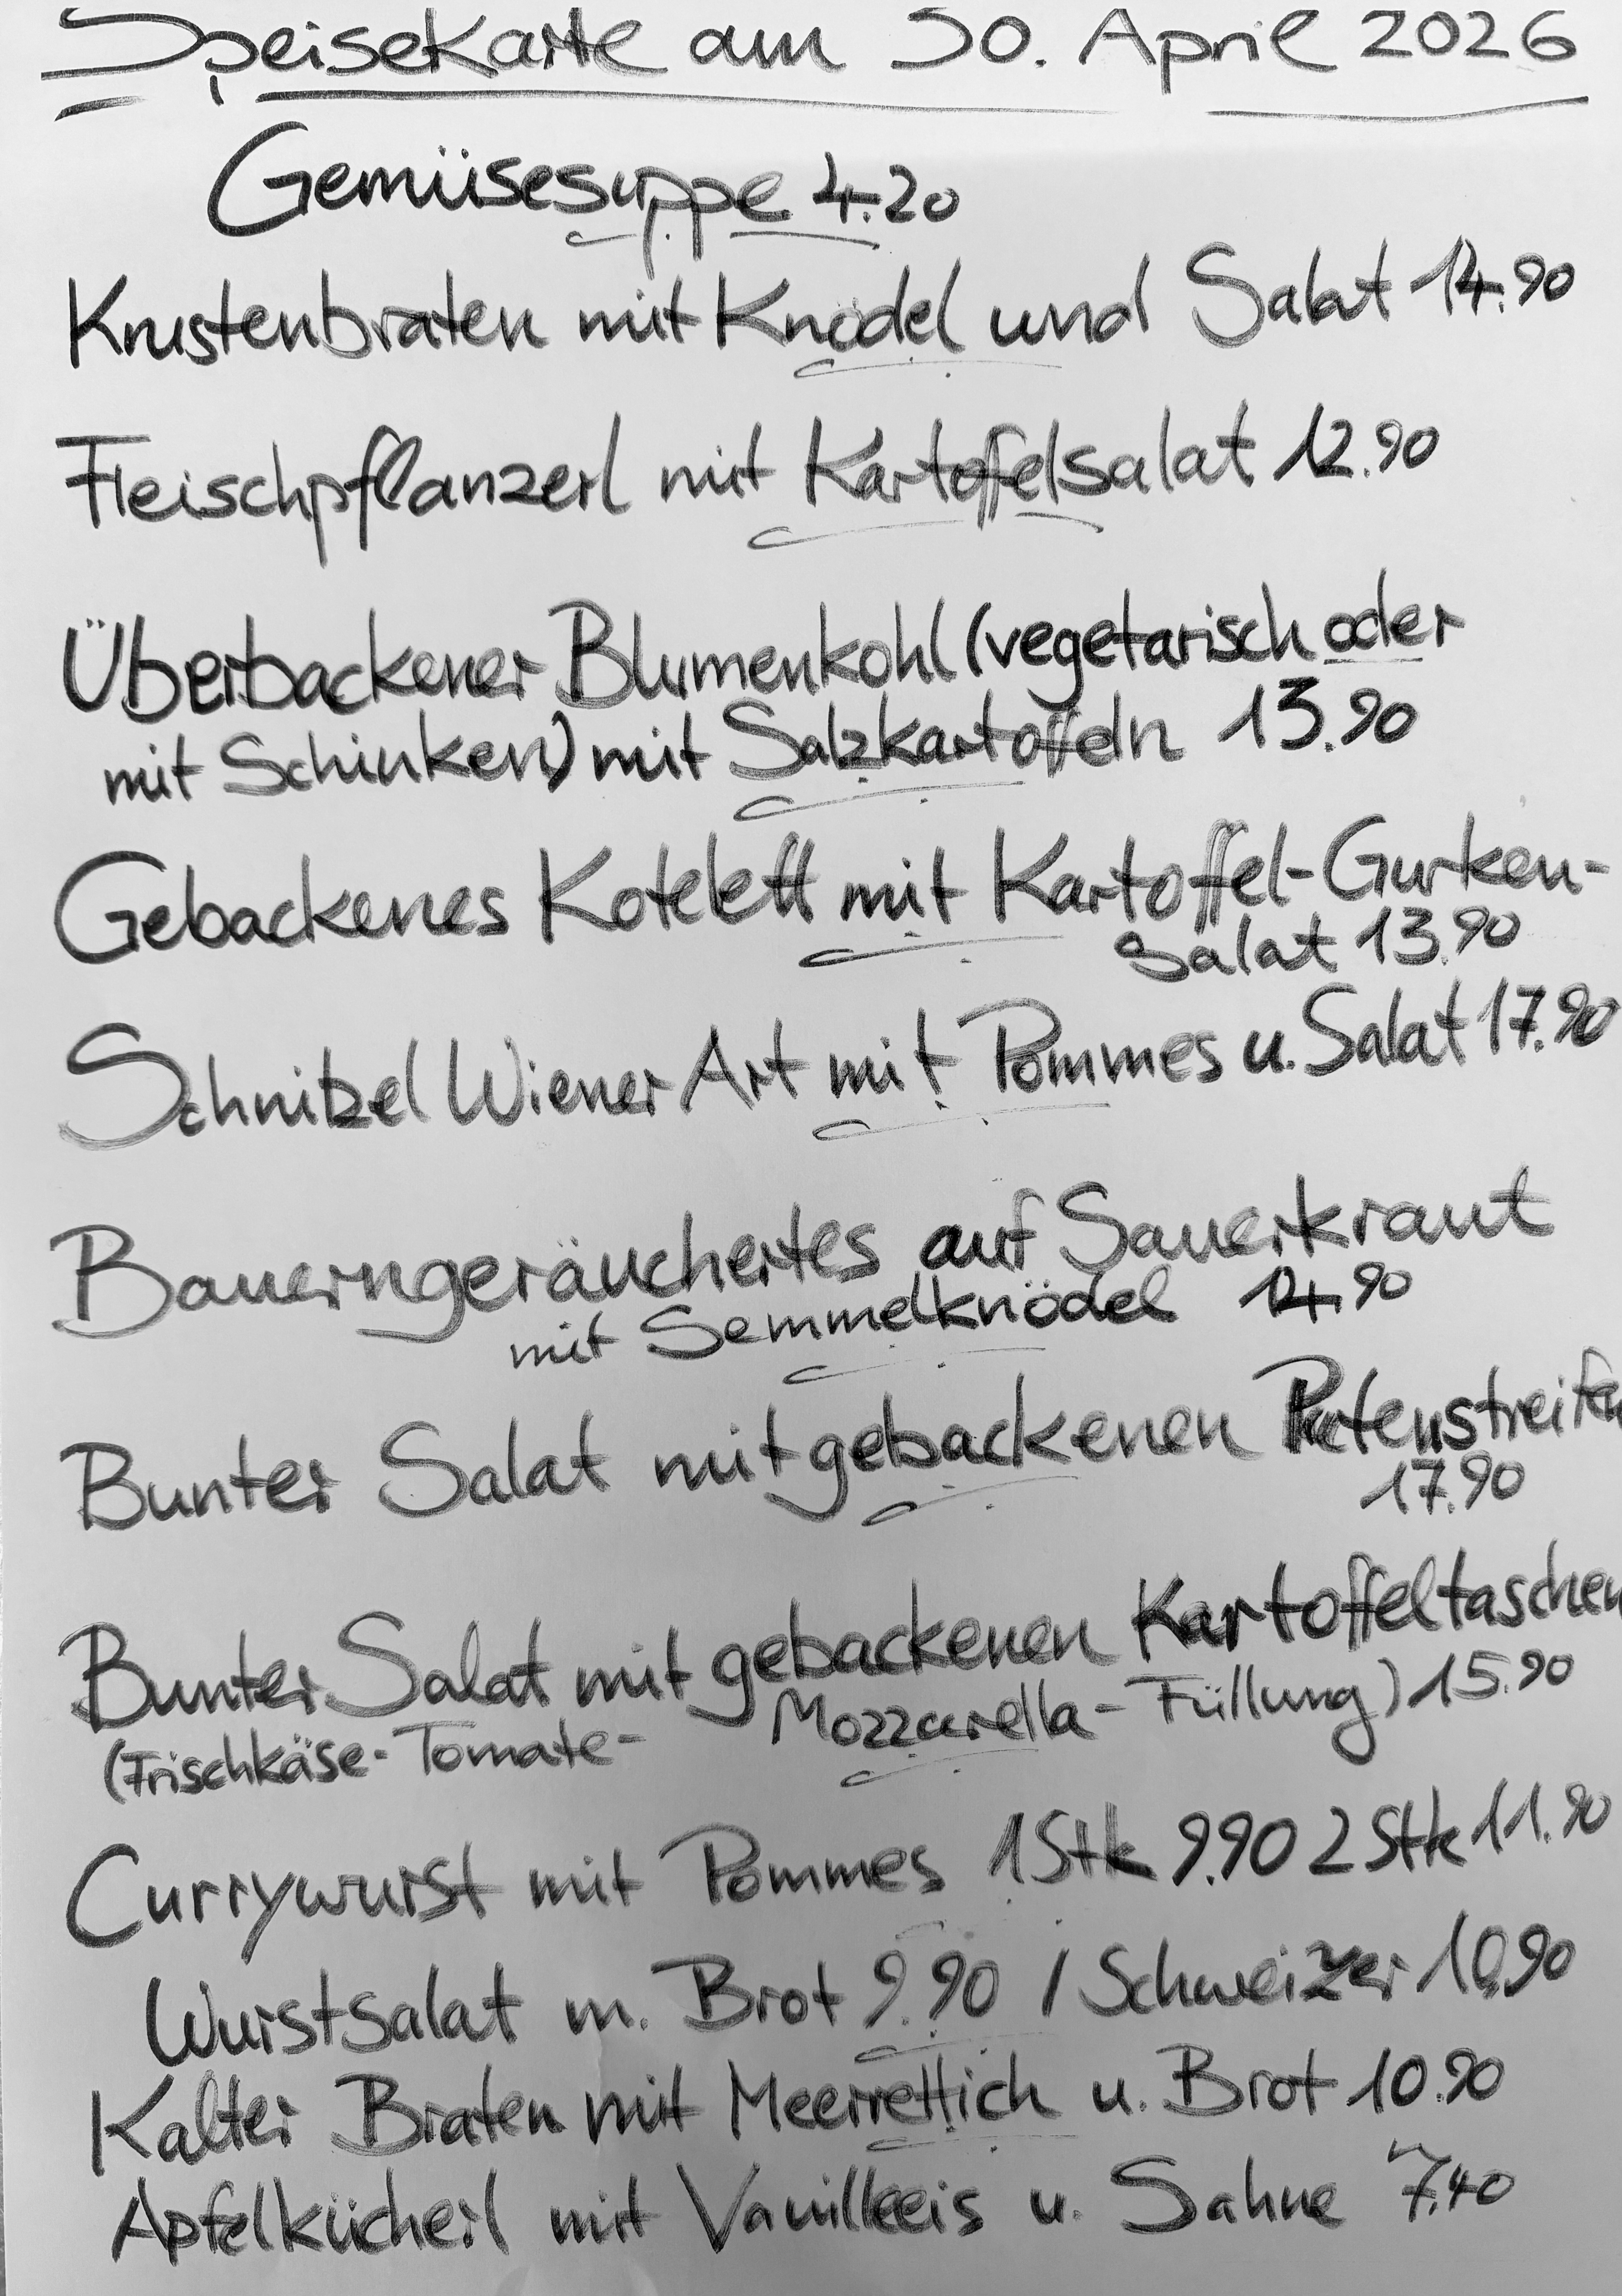 Speisekarte am 30. April 2026
Gemüsesuppe 4.20
Krustenbraten mit Knödel und Salat 14.90
Fleischpflanzerl mit Kartoffelsalat 12.90
Überbackener Blumenkohl (vegetarisch oder
mit Schinken) mit Salzkartoffeln 13.90
Gebackenes Kotelett mit Kartoffel-Gurken-
Salat 13.90
Schnitzel Wiener Art mit Pommes u. Salat 17.90
Bauerngeräuchertes auf Sauerkraut
mit Semmelknödel 14.90
Bunter Salat mit gebackenen Putenstreifen
17.90
Bunter Salat mit gebackenen Kartoffeltaschen
(Frischkäse-Tomate- Mozzarella-Füllung) 15.90
Currywurst mit Pommes 1 Stk 9.90 2 Stk 11.90
Wurstsalat m. Brot 9.90 / Schweizer 10.90
Kalter Braten mit Meerrettich u. Brot 10.90
Apfelkücherl mit Vanilleeis u. Sahne 7.40